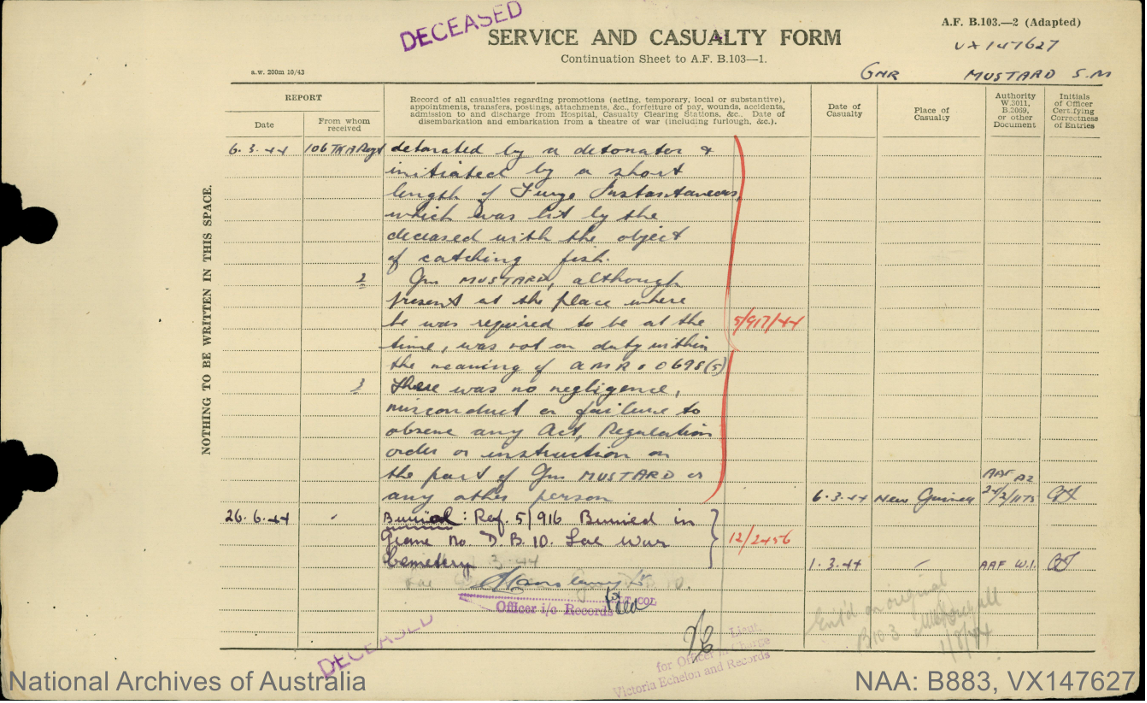 DECEASED
A.F. B.103.—2 (Adapted)
SERVICE AND CASUALTY FORM
VX147627
Continuation Sheet to A.F. B.103—1.
a.w. 200m 10/43
GNR MUSTARD S.M
REPORT
Date
From whom received
Record of all casualties regarding promotions (acting, temporary, local or substantive),
appointments, transfers, postings, attachments, &c., forfeiture of pay, wounds, accidents,
admission to and discharge from Hospital, Casualty Clearing Stations, &c. Date of
disembarkation and embarkation from a theatre of war (including furlough, &c.).
Date of Casualty
Place of Casualty
Authority W.3011, B.2069, or other Document
Initials of Officer Certifying Correctness of Entries
NOTHING TO BE WRITTEN IN THIS SPACE.
6.3.44 106 TK A Regt detonated by a detonator &
initiated by a short
length of Fuze Instantaneous,
which was lit by the
deceased with the object
of catching fish.
2 Gnr MUSTARD, although
present at the place where
he was required to be at the
5/917/44
time, was not on duty within
the meaning of AMR & O 698(5)
3 There was no negligence,
misconduct or failure to
observe any Act, Regulation
order or instruction on
the part of Gnr MUSTARD or
any other person 6.3.44 New Guinea
26.6.44 Burial: Ref. 5/916 Buried in
Grave No. D.B.10. Lae War
12/2456
Cemetery 1.3.44 AAF W.1.
LT COL
Officer i/c Records
Ent'd on original
B103
1/8/44
DECEASED
Lieut.
for Officer in Charge
Victoria Echelon and Records
National Archives of Australia
NAA: B883, VX147627